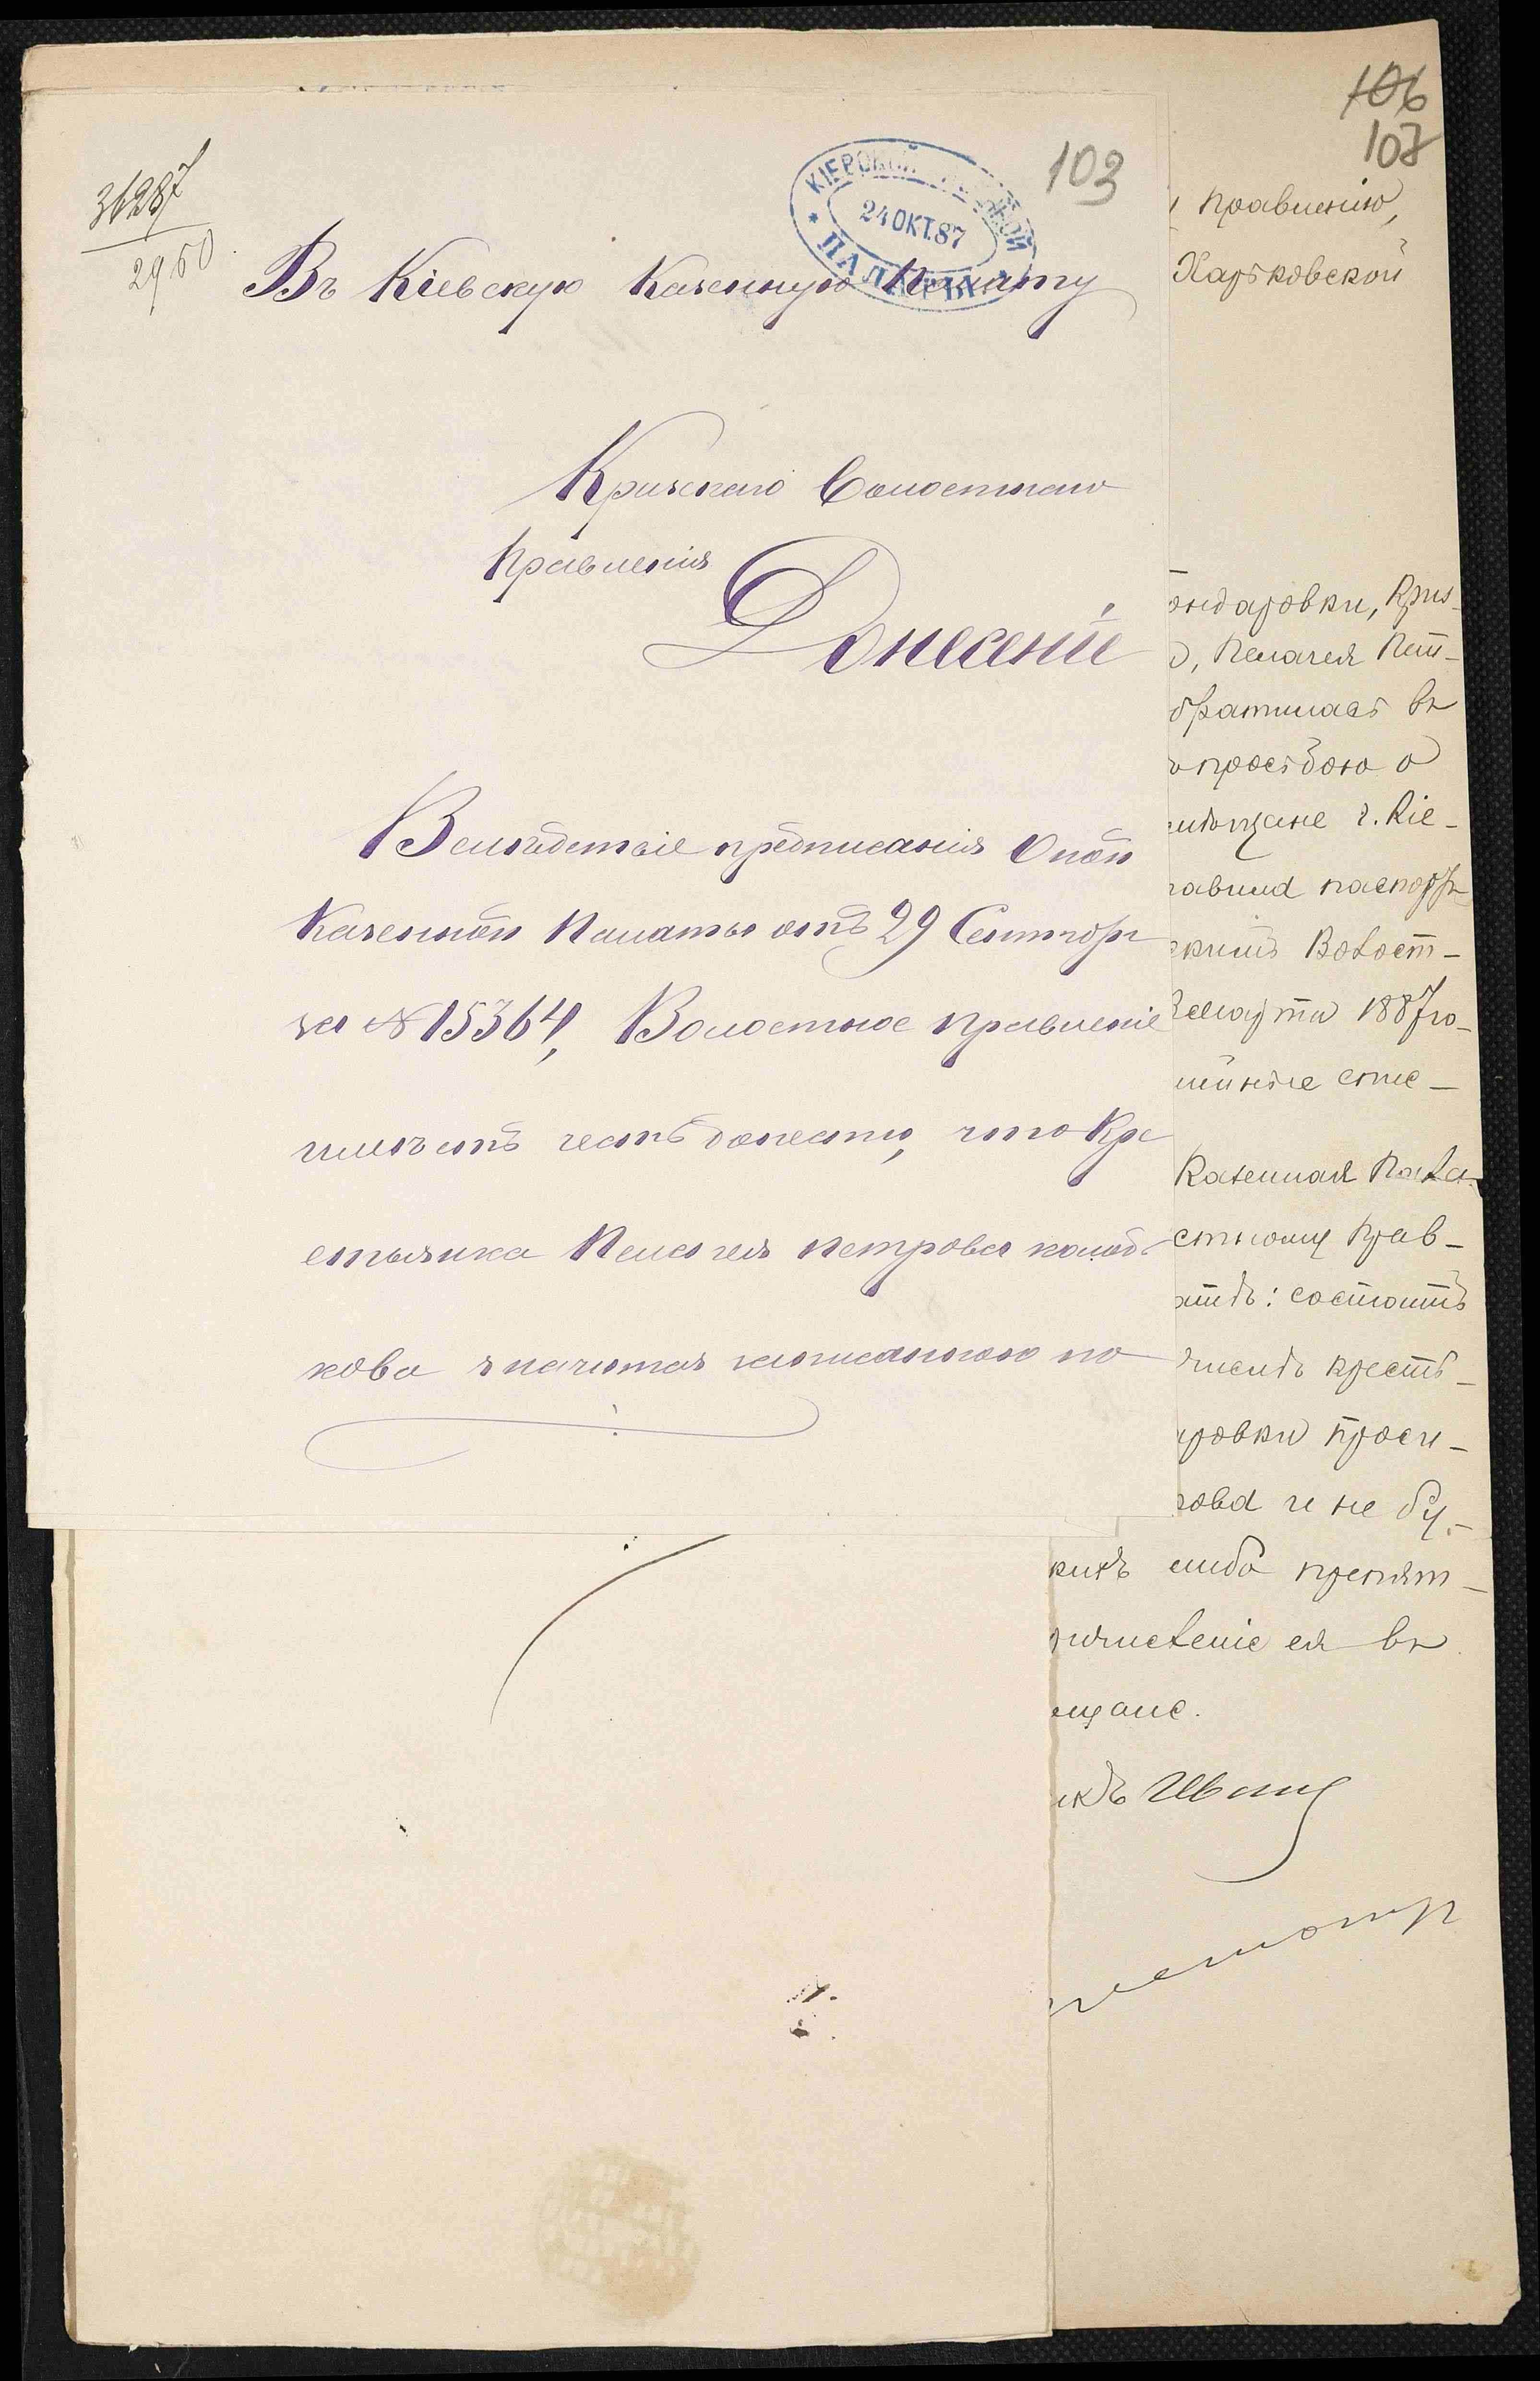 106
107
103
36287
2960
КІЕВСКОЙ
24 ОКТ. 87
ПАЛАТЫ
Въ Кіевскую Казенную Палату
Кризскаго Волостнаго
Правленія
Донесеніе
Вслѣдствіе предписанія Оной
Казенной Палаты отъ 29 Сентября
за № 15364, Волостное Правленіе
имѣетъ честь донести, что Кре
стьянка Пелагея Петрова
кова значится записанною по
Правленію,
Харьковской
ондаровки, Криз-
Пелагея Пет-
братилась въ
просьбою о
ѣщане г. Кіе-
паспортъ
Волост-
марта 1887 го-
Казенная Пала-
стному Прав-
состоитъ
числѣ кресть-
ровки проси-
рова и не бу-
кихъ либо препят-
ричисленіе ея въ
ѣщане.
икъ